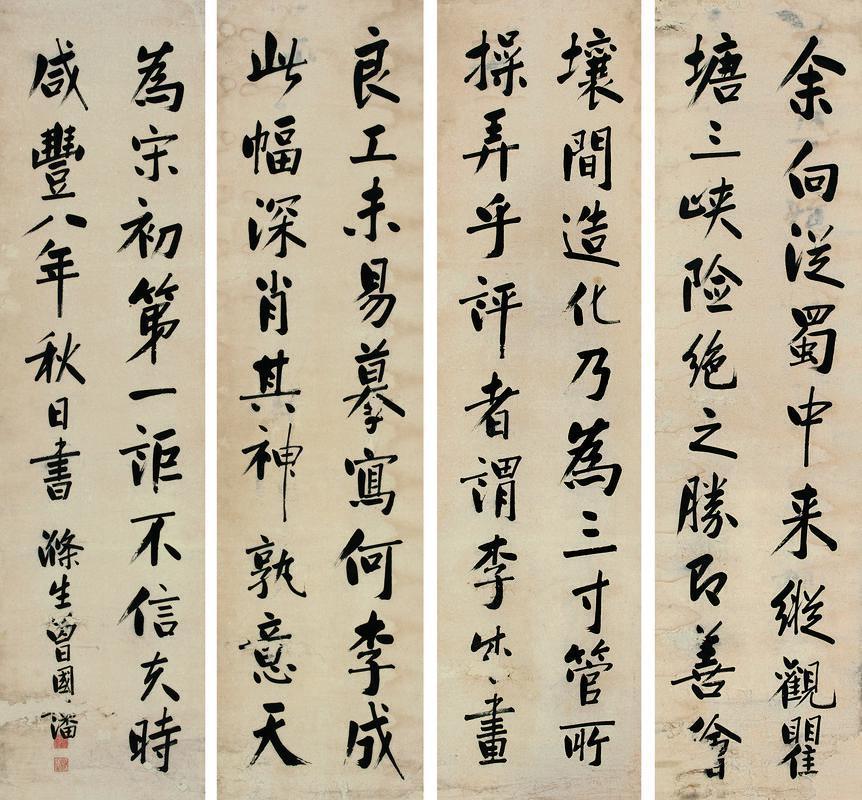 余向從蜀中来縱觀瞿
塘三峡险绝之勝即善繪
壤間造化乃為三寸管所
操弄乎評者謂李成畫
良工未易摹寫何李成
此幅深肖其神孰意天
為宋初第一詎不信夫時
咸豐八年秋日書 滌生曾國藩